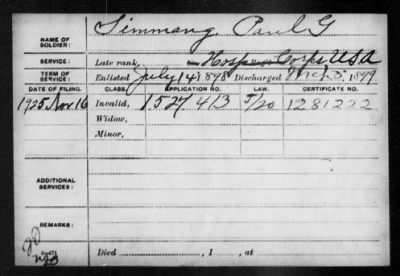 NAME OF SOLDIER: Simmang, Paul G
SERVICE: Late rank, Hosp Corps USA
TERM OF SERVICE: Enlisted July 14, 1898 Discharged Mch 5, 1899
DATE OF FILING. CLASS. APPLICATION NO. LAW. CERTIFICATE NO.
1925 Nov. 16 Invalid, 1.527.413 5/20 1281222
Widow,
Minor,
ADDITIONAL SERVICES:
REMARKS:
Died , 1 , at